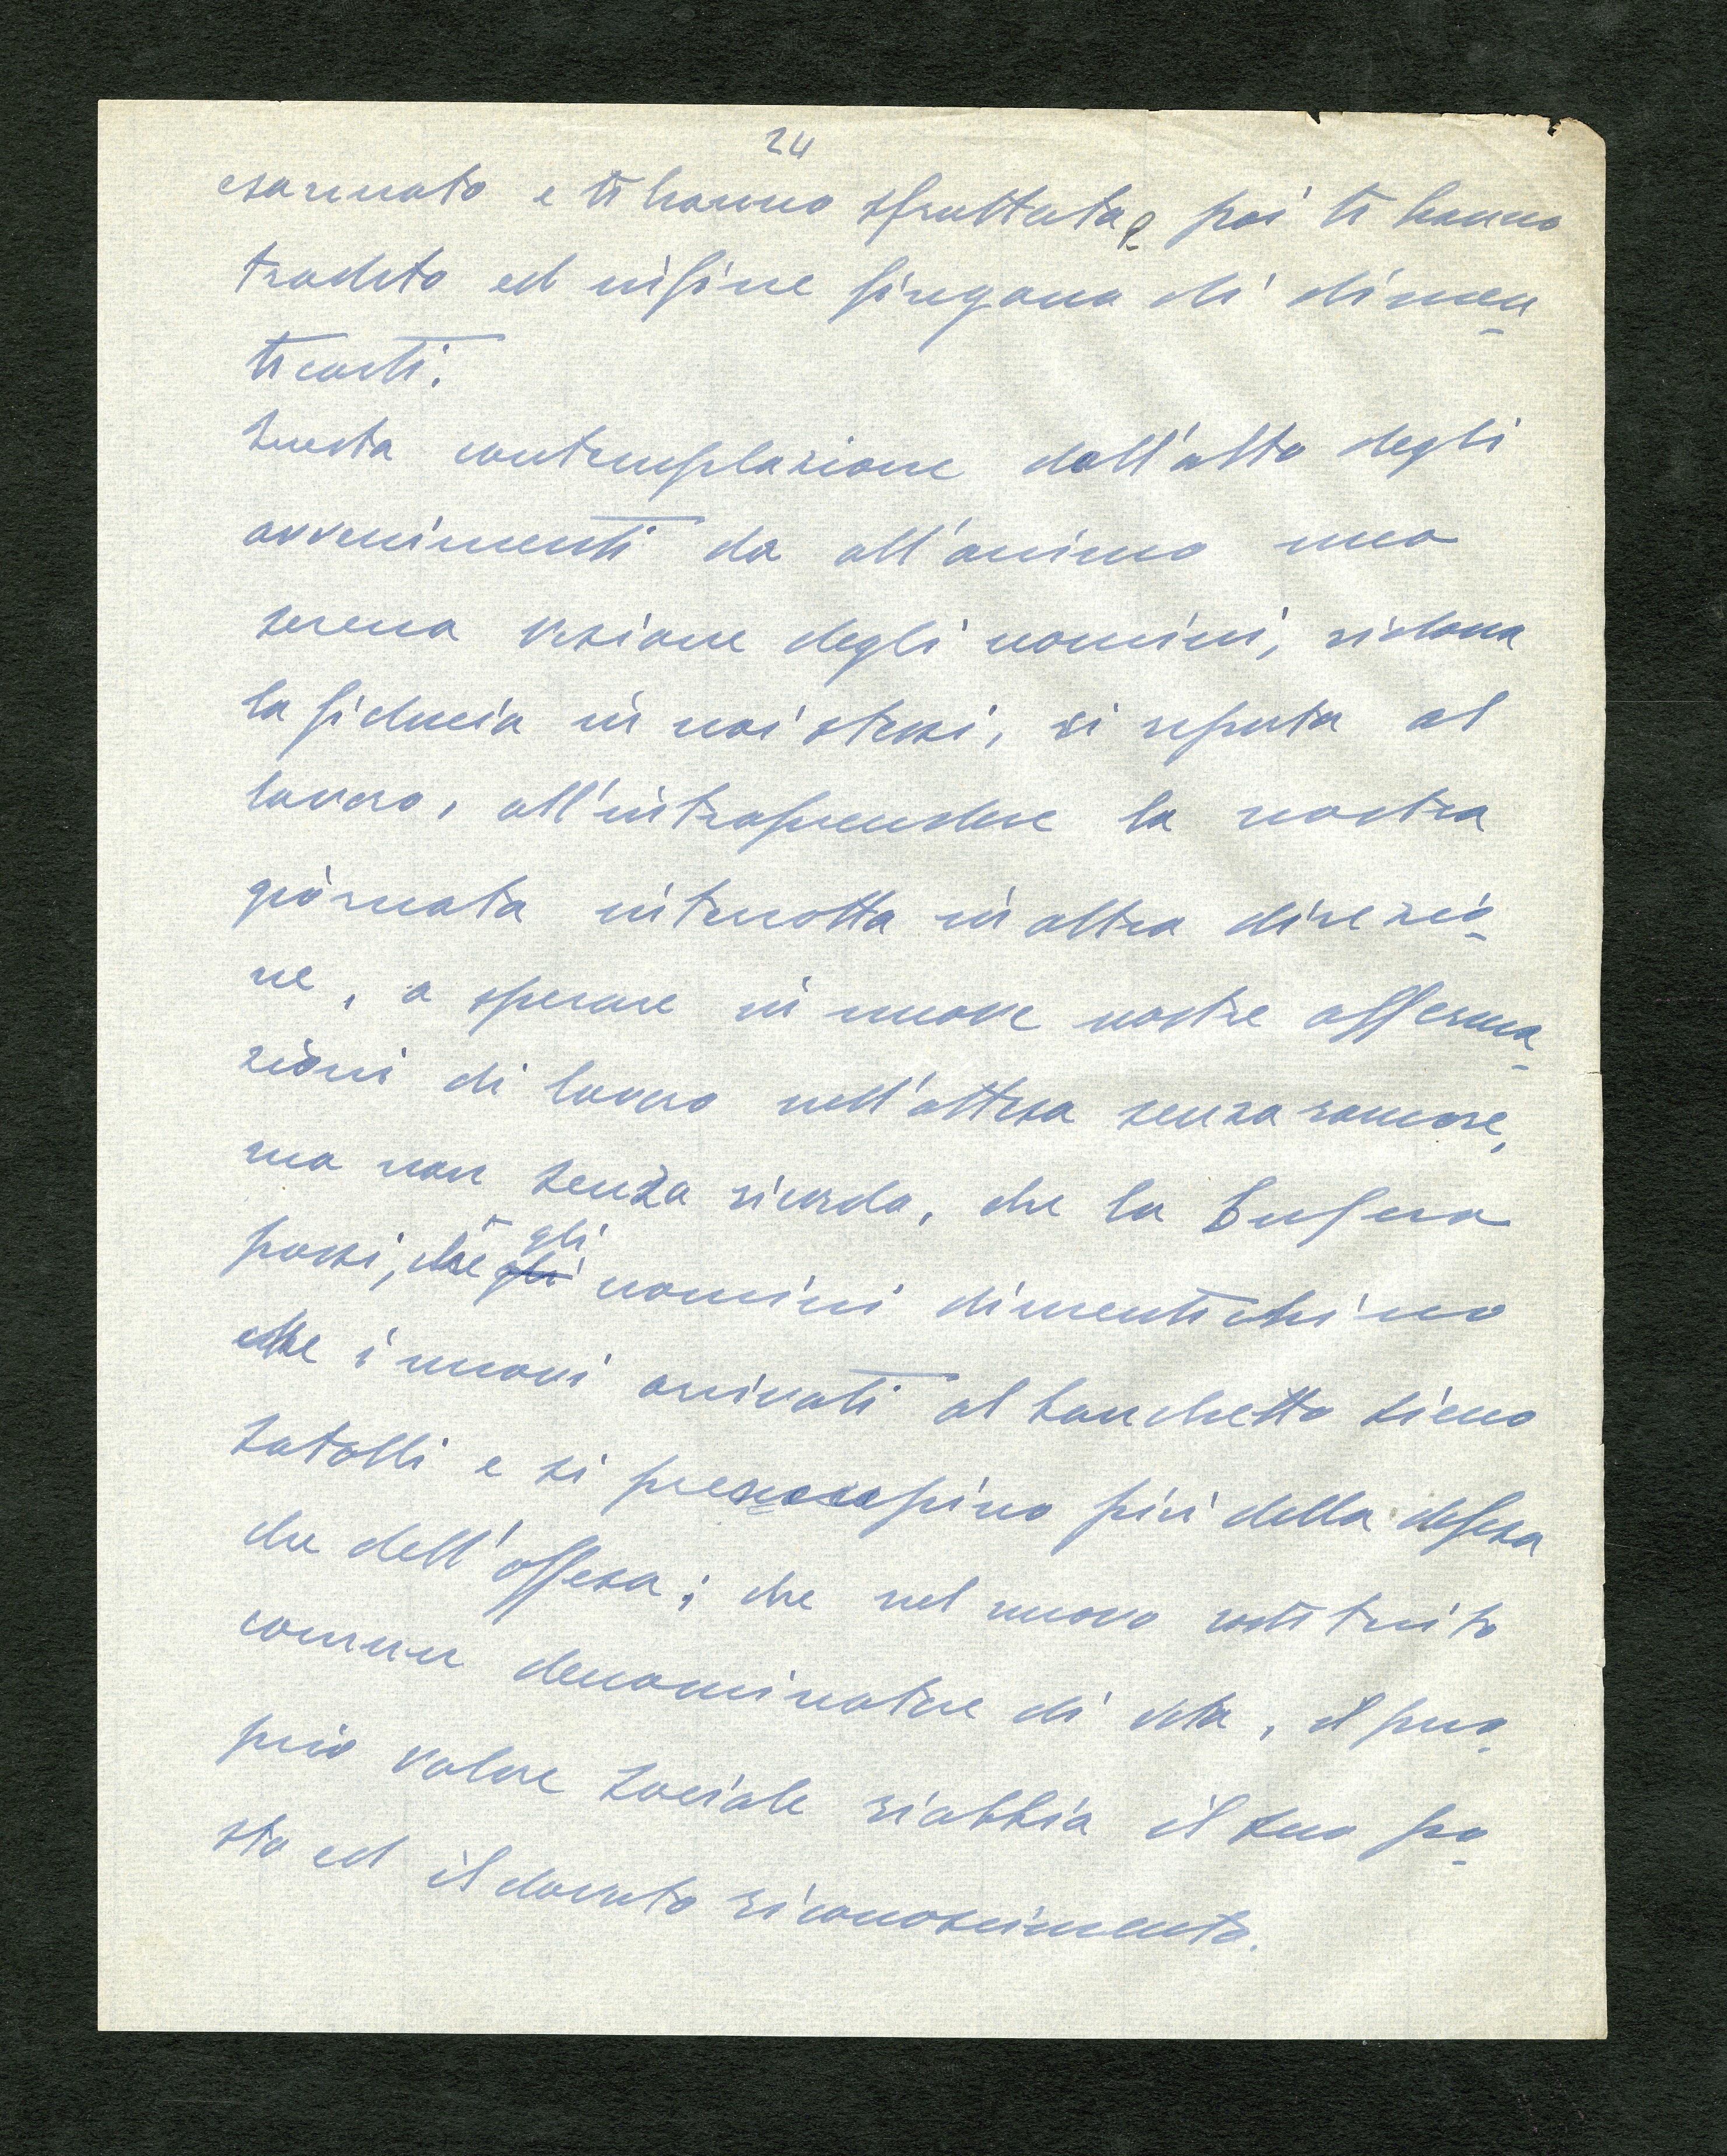 24
esaminato e ti hanno sfruttato, e poi ti hanno
tradito ed infine fingono di dimen-
ticarti.
Questa contemplazione dall'alto degli
avvenimenti da all'animo una
serena visione degli uomini, ridona
la fiducia in noi stessi, ci riporta al
lavoro, all'intraprendere la nostra
giornata interrotta in altra direzio-
ne, a sperare in nuove nostre afferma-
zioni di lavoro nell'attesa senza rancore,
ma non senza ricordo, che la bufera
passi, che gli uomini dimentichino
che i nuovi arrivati al banchetto sieno
satolli e si preoccupino più della difesa
che dell'offesa; che nel nuovo costituito
comun denominatore di vita, il pro-
prio valore sociale riabbia il suo po-
sto ed il dovuto riconoscimento.